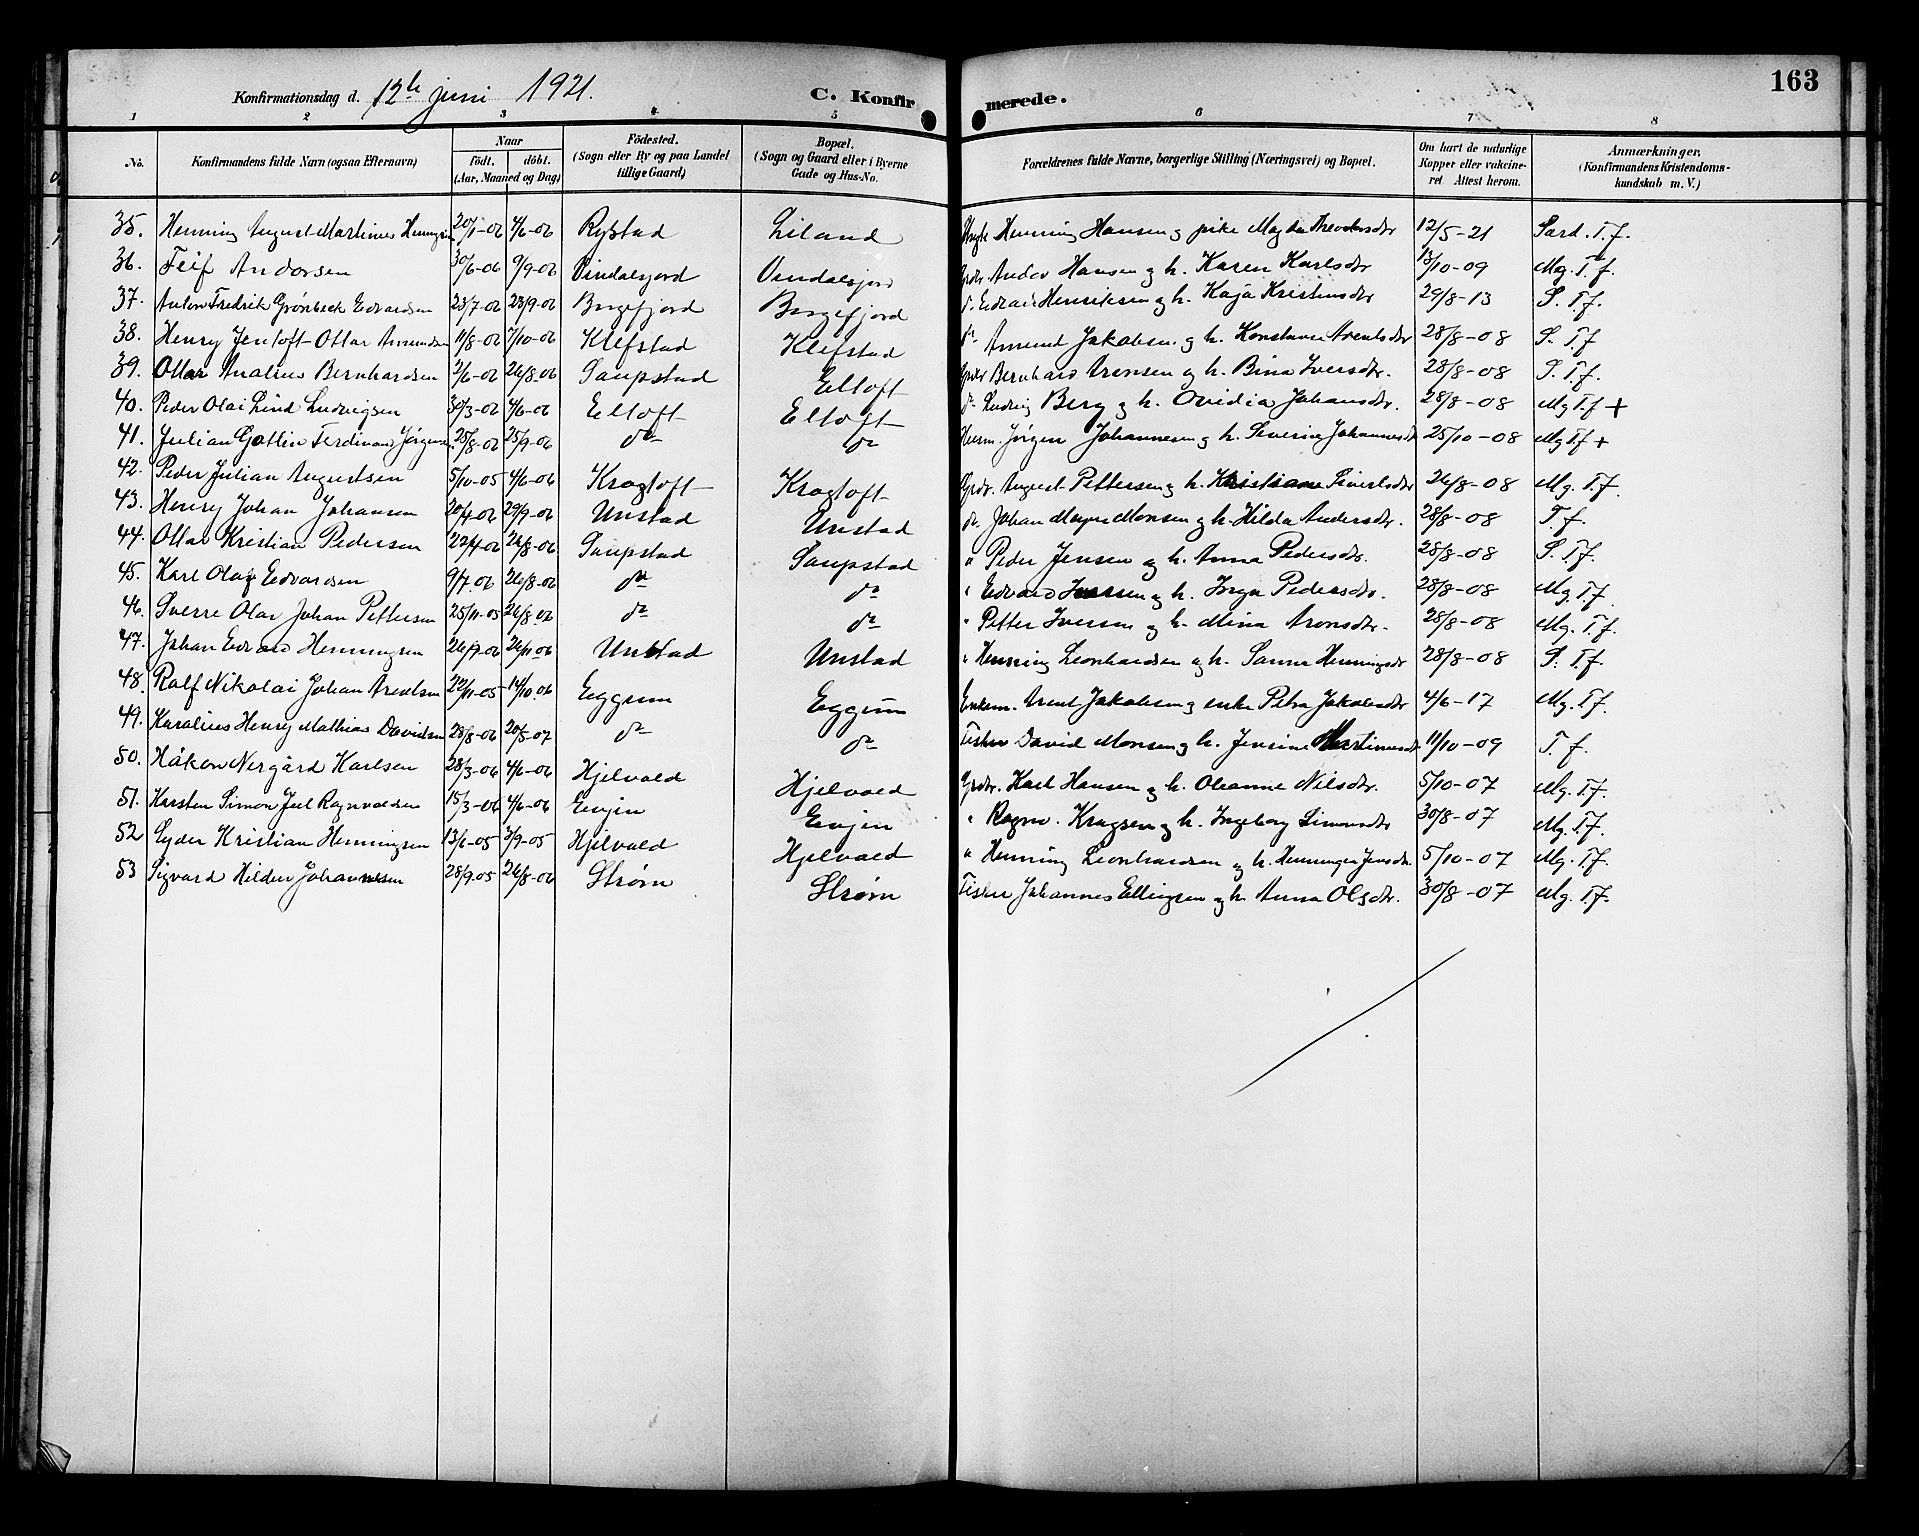 Konfirmationsdag d. 12te juni 1921. C. Konfirmerede. 163
1 2 3 4 5 6 7 8
No. Konfirmandens fulde Navn (ogsaa Efternavn) Naar födt. döbt. (Aar, Maaned og Dag) Födested. (Sogn eller By og paa Landet tillige Gaard) Bopæl. (Sogn og Gaard eller i Byerne Gade og Hus-No. Forældrenes fulde Navne, borgerlige Stilling (Næringsvei) og Bopæl. Om havt de naturlige Kopper eller vakcineret. Attest herom. Anmærkninger, (Konfirmandens Kristendomskundskab m. V.)
35. Henning August Martinus Henningsen 20/1-06 4/6-06 Rystad Liland Henning Hansen og pike Magda Theodorsdtr 12/5-21 Særd. T.f.
36. Leif Andorsen 30/6-06 9/9-06 Vindalsfjord Vindalsfjord Grdbr. Andor Hansen og h. Karen Karlsdtr 13/10-09 Mg. T.f.
37. Anton Fredrik Grønbeck Edvardsen 23/7-06 23/9-06 Borgefjord Borgefjord do. Edvard Henriksen og h. Kaja Kristensdtr 29/8-13 S. T.f.
38. Henry Jentoft Ottar Amundsen 11/8-06 7/10-06 Klefstad Klefstad do Amund Jakobsen og h. Konstanse Arentsdtr 28/8-08 S. T.f
39. Ottar Analius Bernhardsen 2/6-06 26/8-06 Saupstad Eltoft Grdbr Bernhard Arensen og h. Bina Iversdtr. 28/8-08 S. T.f.
40. Peder Olai Lind Ludvigsen 30/3-06 4/6-06 Eltoft Eltoft do Ludvig Berg og h. Ovidia Johansdtr. 28/8-08 Mg T.f +
41. Julian Gotlin Ferdinand Jørgensen 25/8-06 25/9-06 do do Jørgen Johannesen og h. Severine Johannesdtr 25/10-08 Mg T.f +
42. Peder Julian Augustsen 5/10-05 4/6-06 Kragtoft Kragtoft Grdbr. August Pettersen og h. Kristiane Sivertsdtr 26/8-08 Mg. T.f.
43. Henry Johan Johansen 20/4-06 29/9-06 Unstad Unstad do. Johan Mogns Monsen og h. Hilda Andersdtr. 28/8-08 T.f.
44. Ottar Kristian Pedersen 22/4-06 26/8-06 Saupstad Saupstad " Peder Jensen og h. Anna Pedersdtr. 28/8-08 S. T.f.
45. Karl Olaf Edvardsen 9/7.06 26/8-06 do do " Edvard Iversen og h. Inga Pedersdtr. 28/8-08 Mg. T.f.
46. Sverre Olav Johan Pettersen 25/11-05 26/8-06 do do " Petter Iversen og h. Mina Aronsdtr. 28/8-08 Mg. T.f.
47. Johan Edvard Henningsen 26/9-06 26/11-06 Unstad Unstad " Henning Leonhardsen og h. Sanna Henningsdtr 28/8-08 S. T.f.
48. Rolf Nikolai Johan Arentsen 22/11-05 14/10.06 Eggum Eggum Enkem. Arent Jakobsen og enke Petra Jakobsdtr 4/6-17 Mg. T.f.
49. Karalius Henry Mathias Davidsen 28/8-06 20/5-07 do do Fisker David Monsen og h. Jensine Martinusdtr 11/10-09 T.f.
50. Håkon Nergård Karlsen 28/3-06 4/6-06 Hjelvold Hjelvold Grdbr. Karl Hansen og h. Oleanne Nilsdtr. 5/10-07 Mg. T.f.
51. Karsten Simon Juel Ragnvaldsen 15/3-06 4/6-06 Evjen Evjen " Ragnv. Kragsen og h. Ingeborg Simonsdtr 30/8-07 Mg. T.f.
52 Syder Kristian Henningsen 13/6-05 3/9-05 Hjelvold Hjelvold " Henning Leonhardsen og h. Jensdtr. 5/10-07 Mg. T.f.
53 Sigvard Hilder Johannesen 28/9.05 26/8-06 Strøm Strøm Fisker Johannes Ellingsen og h. Anna Olsdtr. 30/8-07 Mg. T.f.